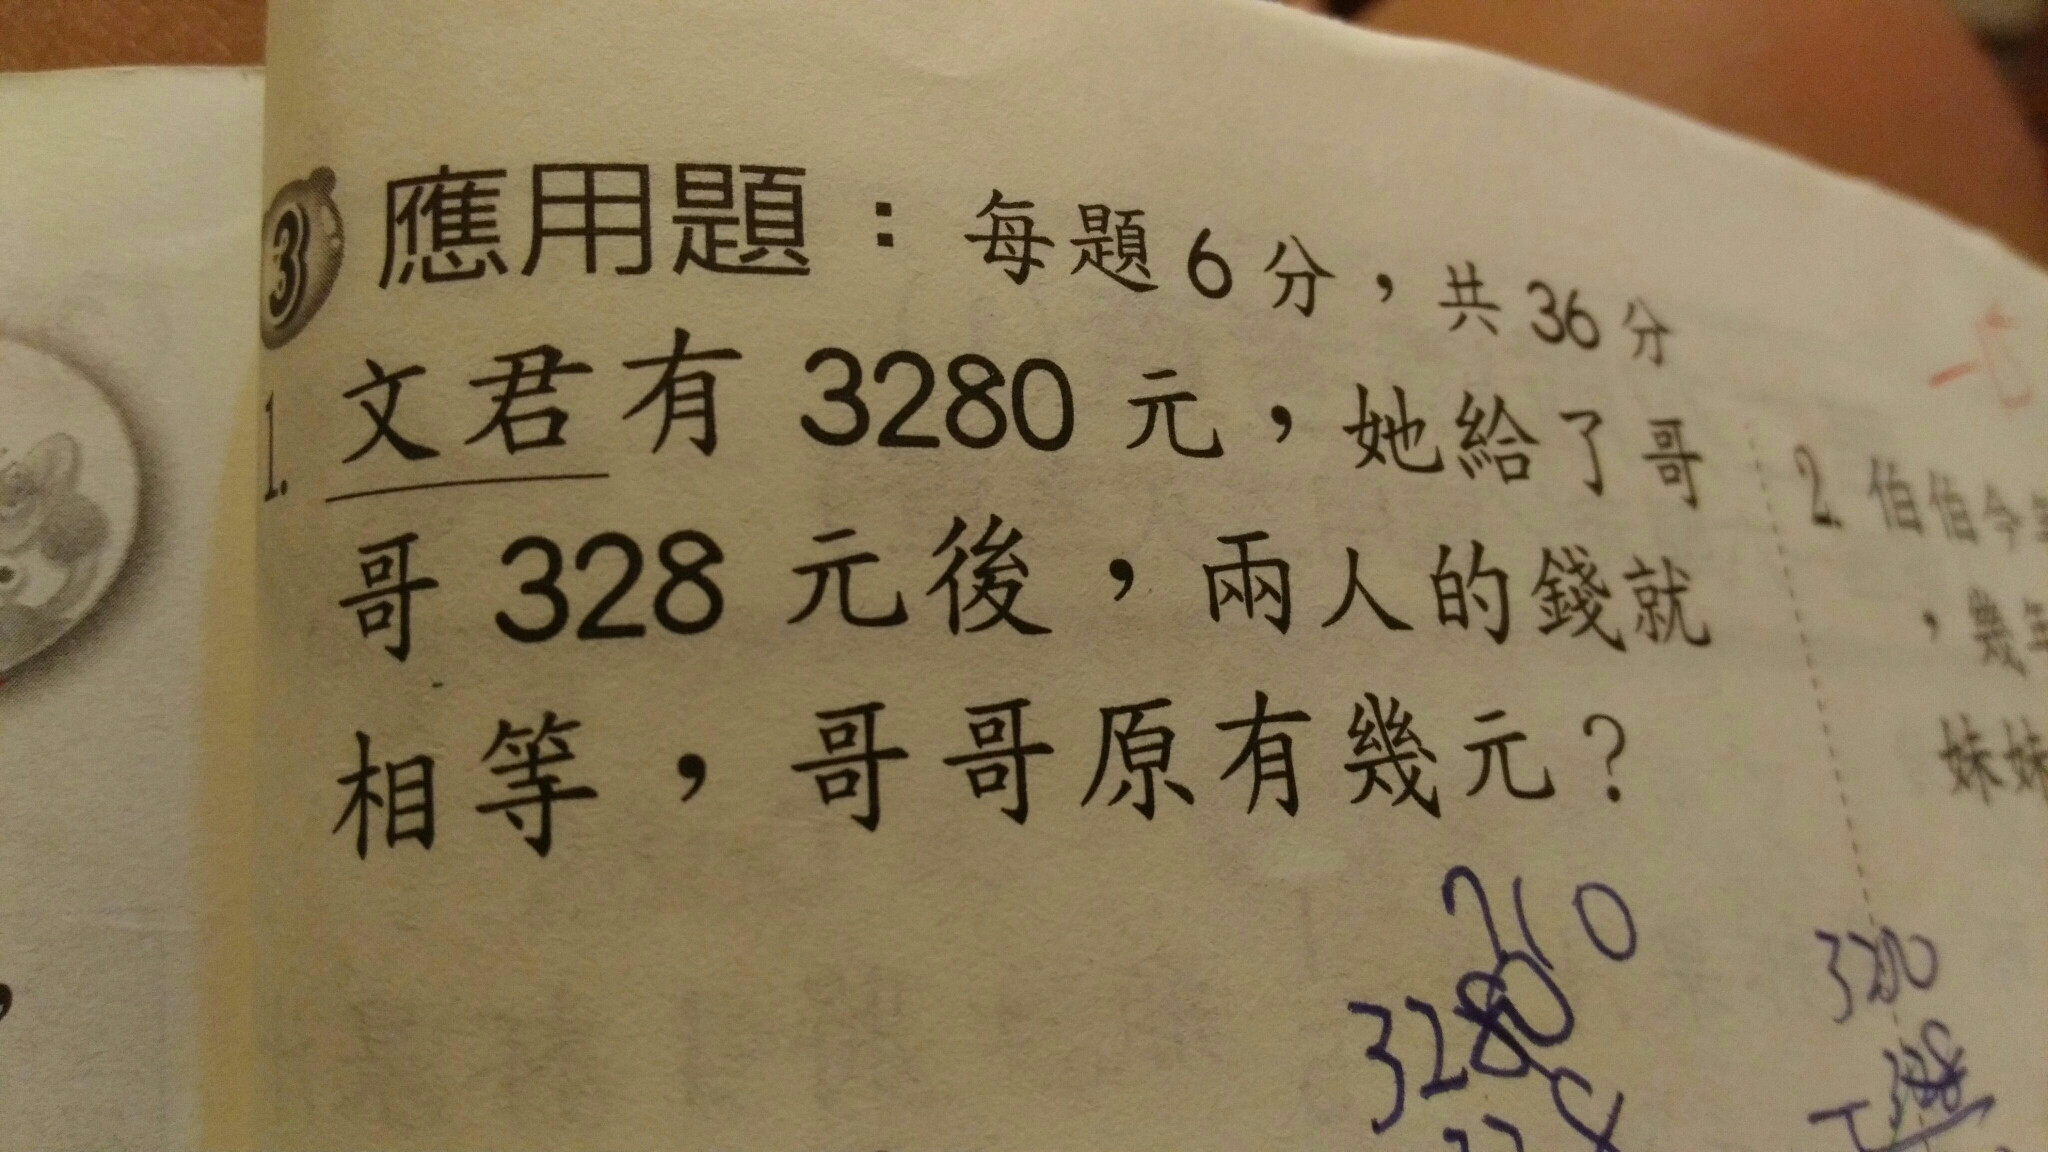 3 應用題：每題6分，共36分
1. 文君有 3280 元，她給了哥
哥 328 元後，兩人的錢就
相等，哥哥原有幾元？
2. 伯伯今
，幾年
妹妹
710
3280
3280
328